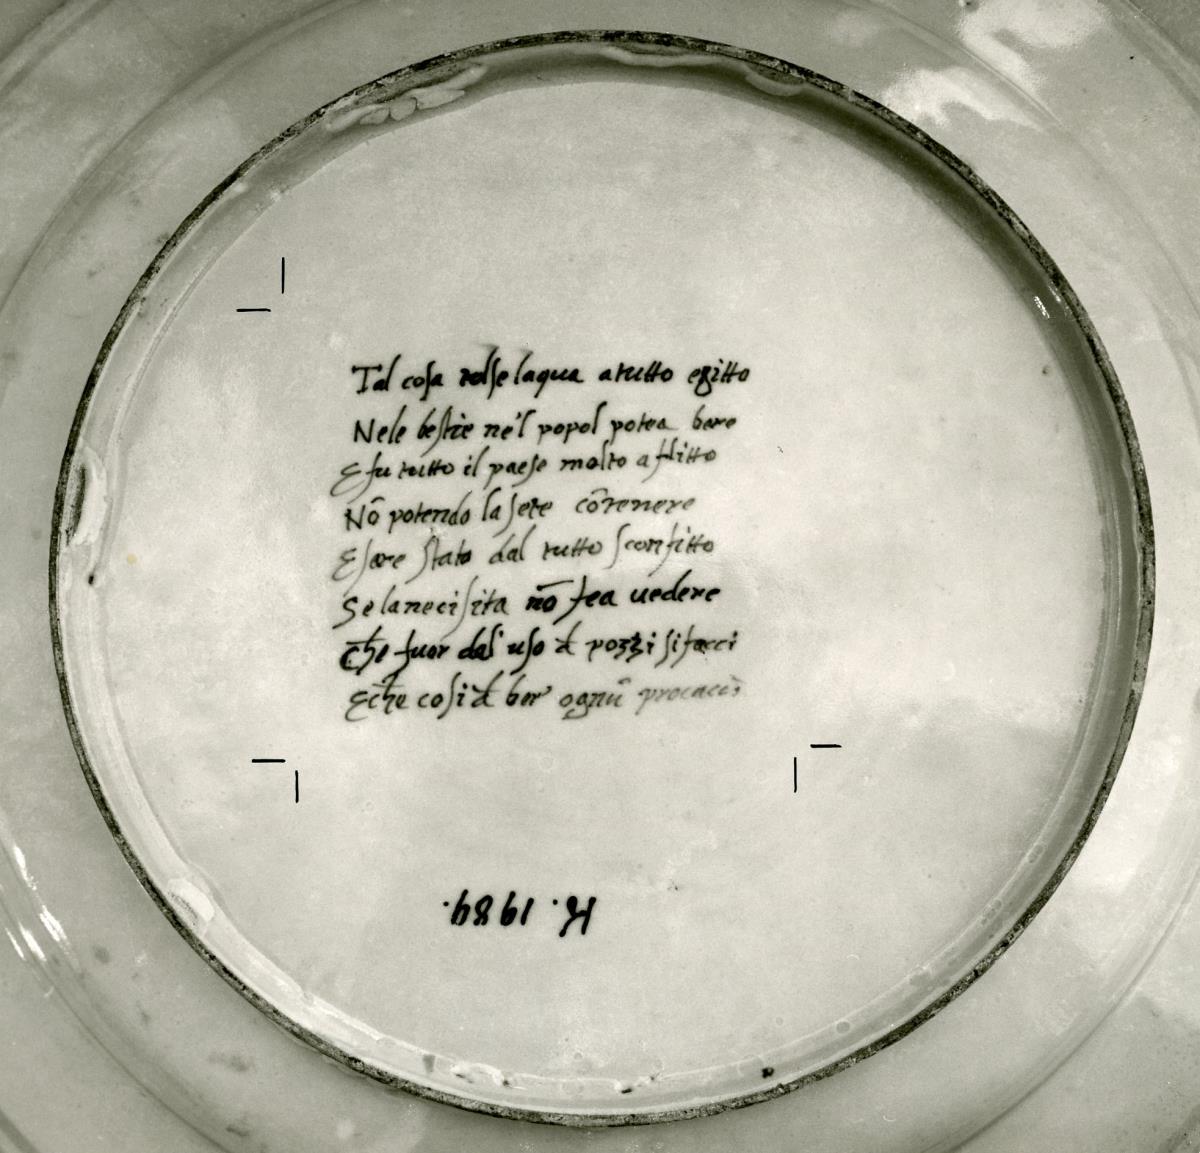 Tal cosa tolse laqua atutto egitto
Nele bestie ne'l popol potea bere
E fu tutto il paese molto aflitto
Nō potendo la sete cōtenere
E sare stato dal tutto sconfitto
Se la necisita nō fea uedere
Che fuor dal' uso d pozzi si facci
E che cosi d ber ognū procacci
K. 1989.